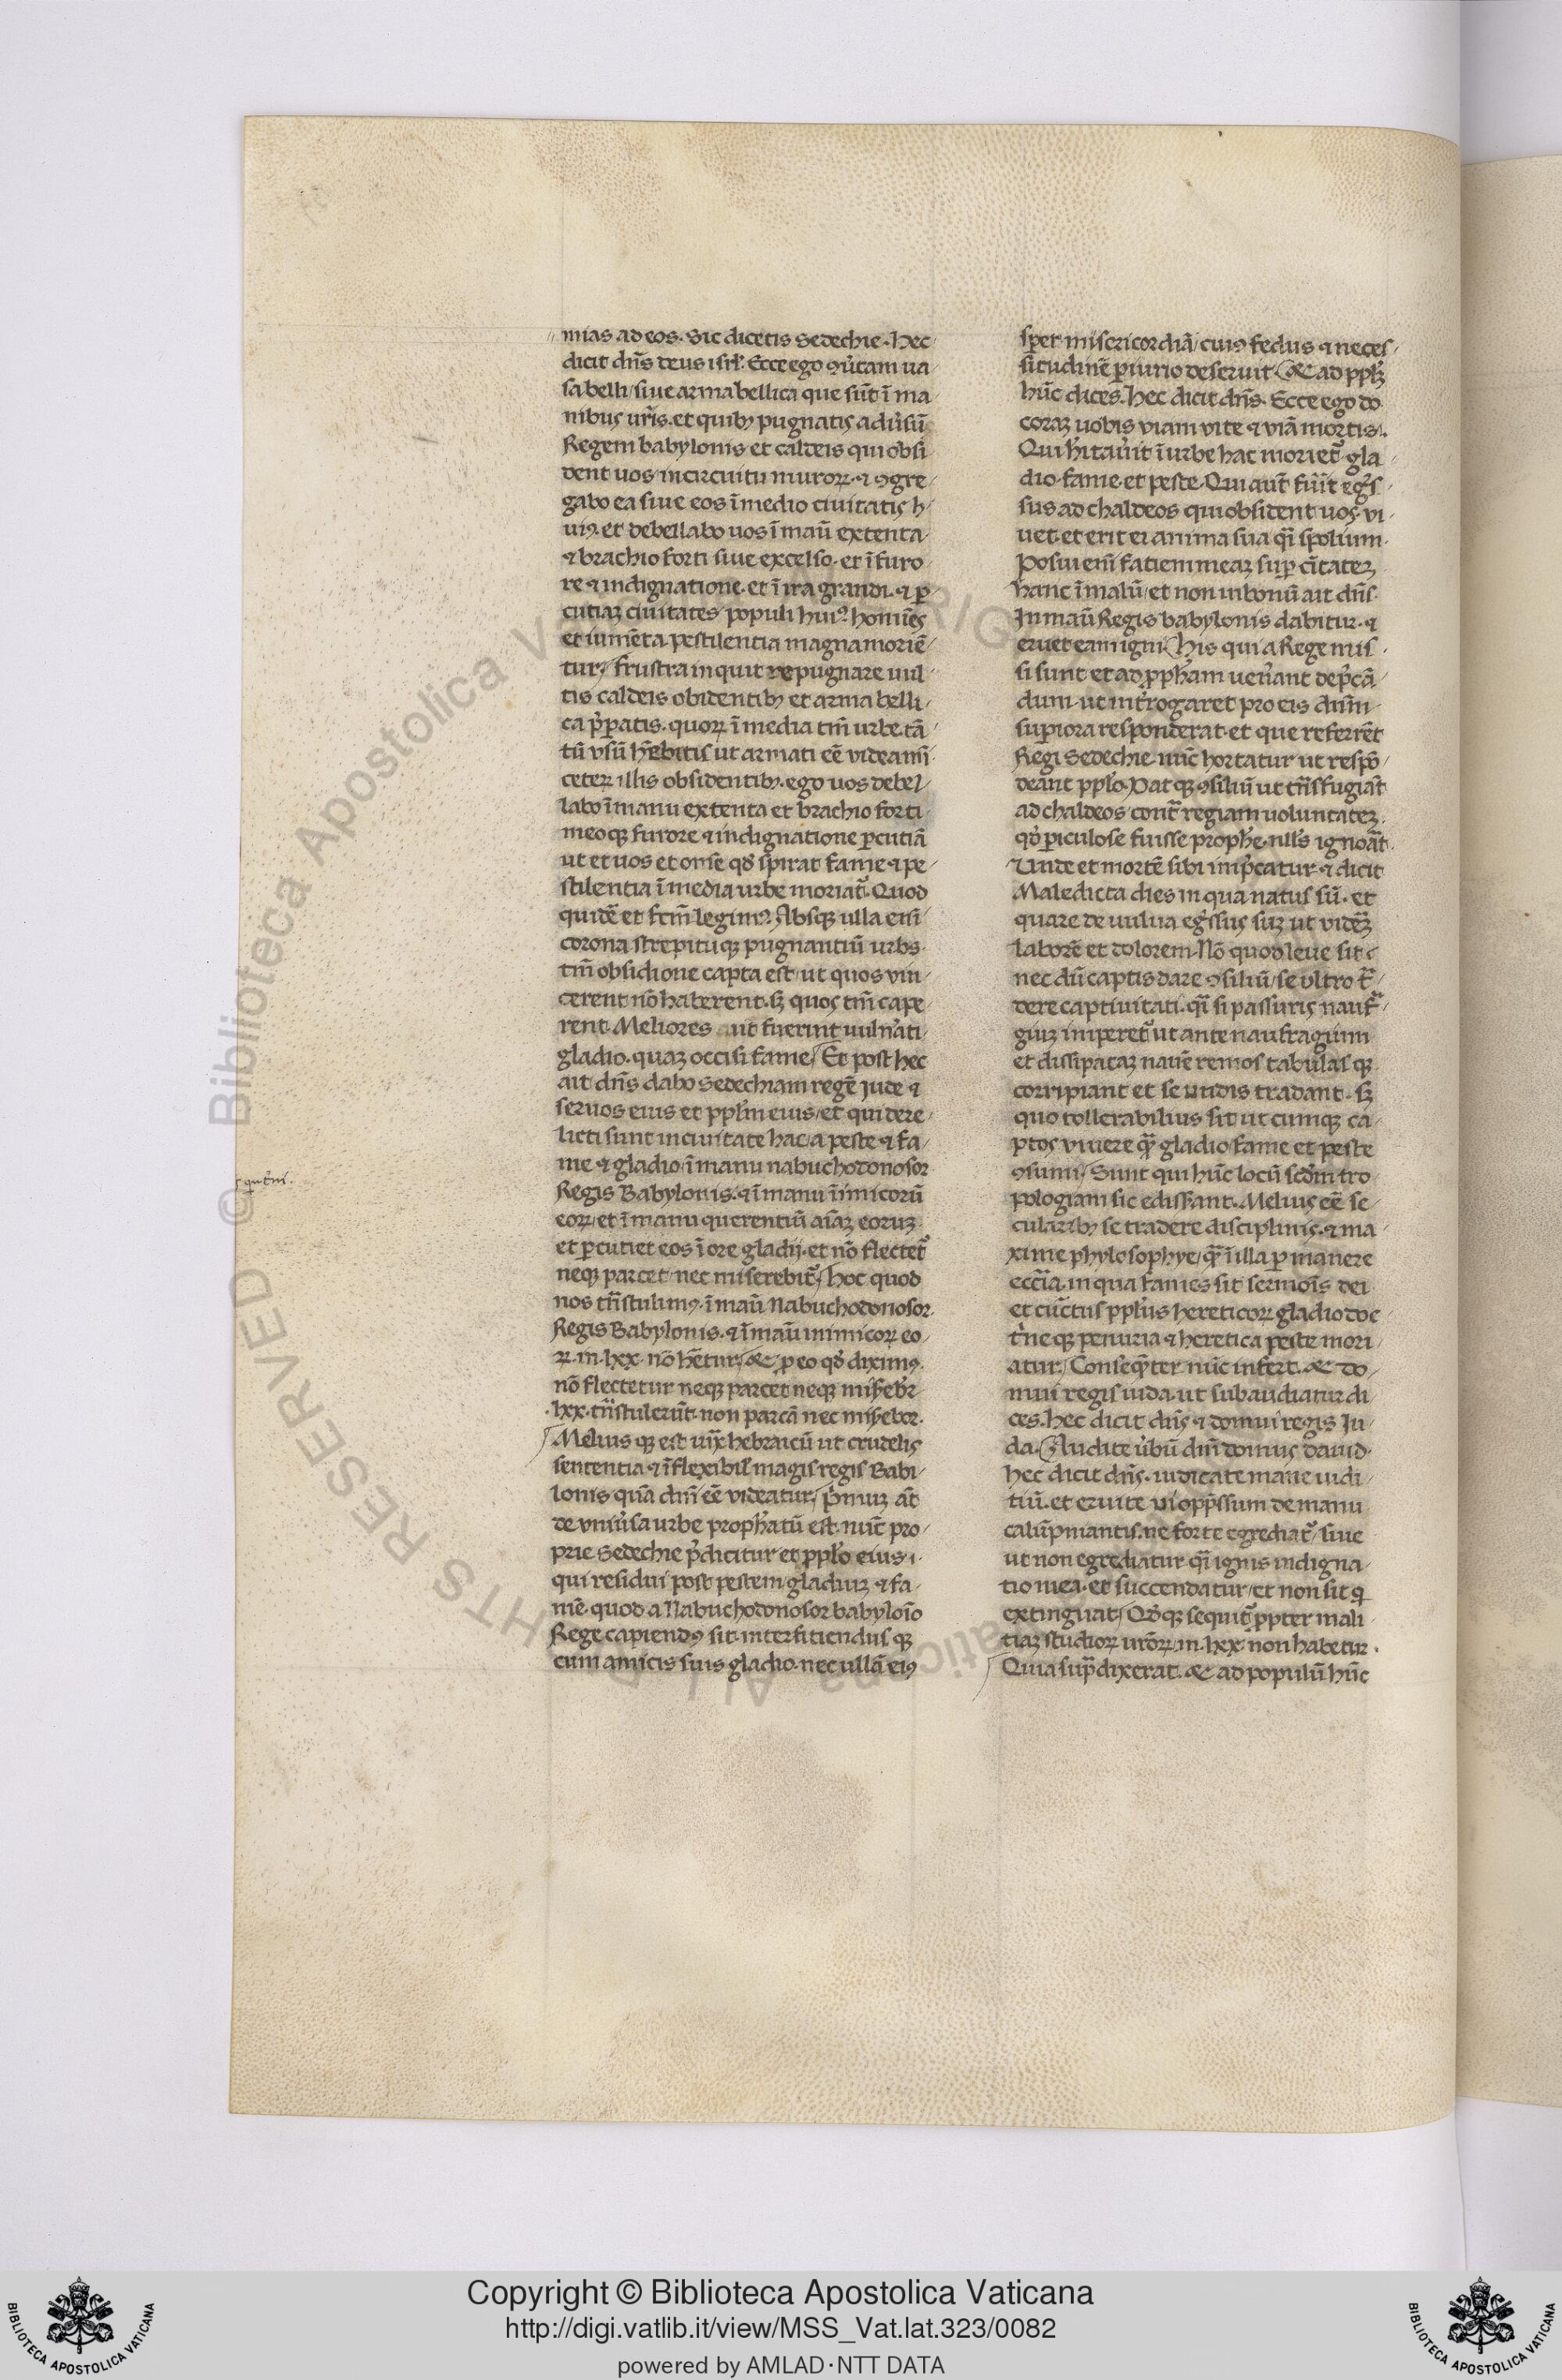 mias ad eos. Sic dicetis Sedechie. Hec
dicit dn̄s deus isrl̓. Ecce ego ꝯu̓tam ua
sa belli siue arma bellica que sūt ī ma
nibus ur̄is. et quibꝫ pugnatis adu̓sū
Regem babylonis et caldeis qui obsi
dent uos in circuitu muroꝝ. ⁊ ꝯgre
gabo ea siue eos ī medio ciuitatis h
uiꝯ. et debellabo uos ī maū extenta
⁊ brachio forti siue excelso. et ī furo
re ⁊ indignatione. et ī ira grandi. ⁊ ꝑ
cutiaꝫ ciuitates populi huiꝯ. homīes
et iumēta pestilentia magna moriē
tur. frustra inquit repugnare uul
tis caldeis obidentibꝫ et arma belli
ca p̓ꝑatis. quoꝝ ī media tm̄ urbe tā
tū vsū hēbitis ut armati eē videamī
ceteꝝ illis obsidentibꝫ. ego uos debel
labo ī manu extenta et brachio forti
meoqꝫ furore ⁊ indignatione ꝑcutiā
ut et uos et om̄e qd̓ spirat fame ⁊ pe
stilentia ī media urbe moriat᷑. Quod
quidē et fc̄m legimꝯ. Absqꝫ ulla eni
corona strepituqꝫ pugnantiū urbs
tm̄ obsidione capta est. ut quos vin
cerent nō haberent. sꝫ quos tm̄ cape
rent. Meliores aut fuerint uuln̓ati
gladio. quaꝫ occisi fame. Et post hec
ait dn̄s dabo Sedechiam regē Jude ⁊
seruos eius et ppl̓m eius. et qui dere
licti sunt in ciuitate hac. a peste ⁊ fa
me ⁊ gladio. ī manu nabuchodonosor
Regis Babylonis. ⁊ ī manu īimicorū
eoꝝ. et ī manu querentiū aīaꝫ eoruꝫ
et ꝑcutiet eos ī ore gladij. et nō flectet᷑
neqꝫ parcet. nec miserebit᷑. Hoc quod
nos tr̄nstulimꝯ. ī maū Nabuchodonosor
Regis Babylonis. ⁊ ī maū inimicoꝝ eo
ꝝ. in .lxx. nō hētur. &c. pro eo qd̓ diximꝯ.
nō flectetur neqꝫ parcet neqꝫ mis̓ebr̓
.lxx. tr̄nstulerūt. non parcā nec mis̓ebor.
Meliusqꝫ est iux̄ hebraicū ut crudelis
sententia ⁊ īflexibil̓ magis regis Babi
lonis qūa dn̄i eē videatur. P̓muꝫ aūt
de vniu̓sa urbe proph̓atū est. nūc pro
prie Sedechie p̓dicitur et ppl̓o eius
qui residui post pestem gladiuꝫ ⁊ fa
mē. quod a Nabuchodonosor babyloīo
Rege capiendꝯ sit. interfitiendusqꝫ
cum amicis suis gladio. nec ullā eiꝯ
sꝑet misericordiā. cuiꝯ fedus ⁊ neces
situdinē ꝑiurio deseruit. &c ad pplꝫ̓
hūc dices. Hec dicit dn̄s. Ecce ego do
coraꝫ uobis viam vite ⁊ viā mortis.
Qui h̓itau̓it ī urbe hac moriet᷑ gla
dio. fame. et peste. Qui aūt fūit egr̓s
sus ad chaldeos qui obsident uos. vi
uet. et erit ei anima sua qͣi spolium.
Posui eni fatiem meaꝫ suꝑ cītateꝫ
hanc ī malū. et non in bonū ait dn̄s.
In maū Regis babylonis dabitur. ⁊
eruet eam igni. His qui a Rege mis
si sunt et ad ꝓph̓am uen̓ant dep̓cā
dum. ut int̓rogaret pro eis dn̄m
suꝑiora responderat. et que referrēt
Regi Sedechie nūc hortatur ut respō
deant ppl̓o. Datqꝫ ꝯsiliū ut tr̄nsfugiāt
ad chaldeos cont᷑ regiam uoluntateꝫ.
qd̓ ꝑiculose fuisse prophe. null̓s ignoāt.
Unde et mortē sibi imp̓catur ⁊ dicit
Maledicta dies in qua natus sū. et
quare de uulua egr̓ssus suꝫ ut videꝫ̓
laborē et dolorem. Nō quod leue sit
nec dū captis dare ꝯsiliū. se ultro tͣ
dere captiuitati. qͣi si passuris naufͣ
giuꝫ imperet᷑ ut ante naufragium
et dissipataꝫ nauē remos tabulasqꝫ
corripiant et se undis tradant. sꝫ
quo tollerabilius sit utcumqꝫ ca
ptos viuere qͣꝫ gladio fame et peste
ꝯsumi. Sunt qui hūc locū scd̓m tro
pologiam sic edisse̓rant. Melius eē se
cularibꝫ se tradere disciplinis. ⁊ ma
xime phylosophye. qͣꝫ ī illa ꝑmanere
eccīa. in qua fames sit sermōis dei
et cūctus ppl̓us hereticoꝝ gladio doc
t̓neqꝫ penuria ⁊ heretica peste mori
atur. Conseqn̄ter nūc infert. &c do
mui regis iuda. ut subaudiatur di
ces. hec dicit dn̄s ⁊ domui regis Ju
da. Audite u̓bū dn̄i domus dauid.
hec dicit dn̄s. iudicate mane iudi
tiū. et eruite vi opp̄ssum de manu
calūpniantis. ne forte egrediat᷑. siue
ut non egrediatur qͣi ignis indigna
tio mea. et succendatur. et non sit qͥ
extinguat. Qd̓qꝫ sequit᷑ ꝓpter mali
tiaꝫ studioꝝ uroꝝ. in .lxx. non habetur.
Quia supͣ dixerat. &c ad populū hūc
Copyright © Biblioteca Apostolica Vaticana
http://digi.vatlib.it/view/MSS_Vat.lat.323/0082
powered by AMLAD·NTT DATA
BIBLIOTECA APOSTOLICA VATICANA
BIBLIOTECA APOSTOLICA VATICANA